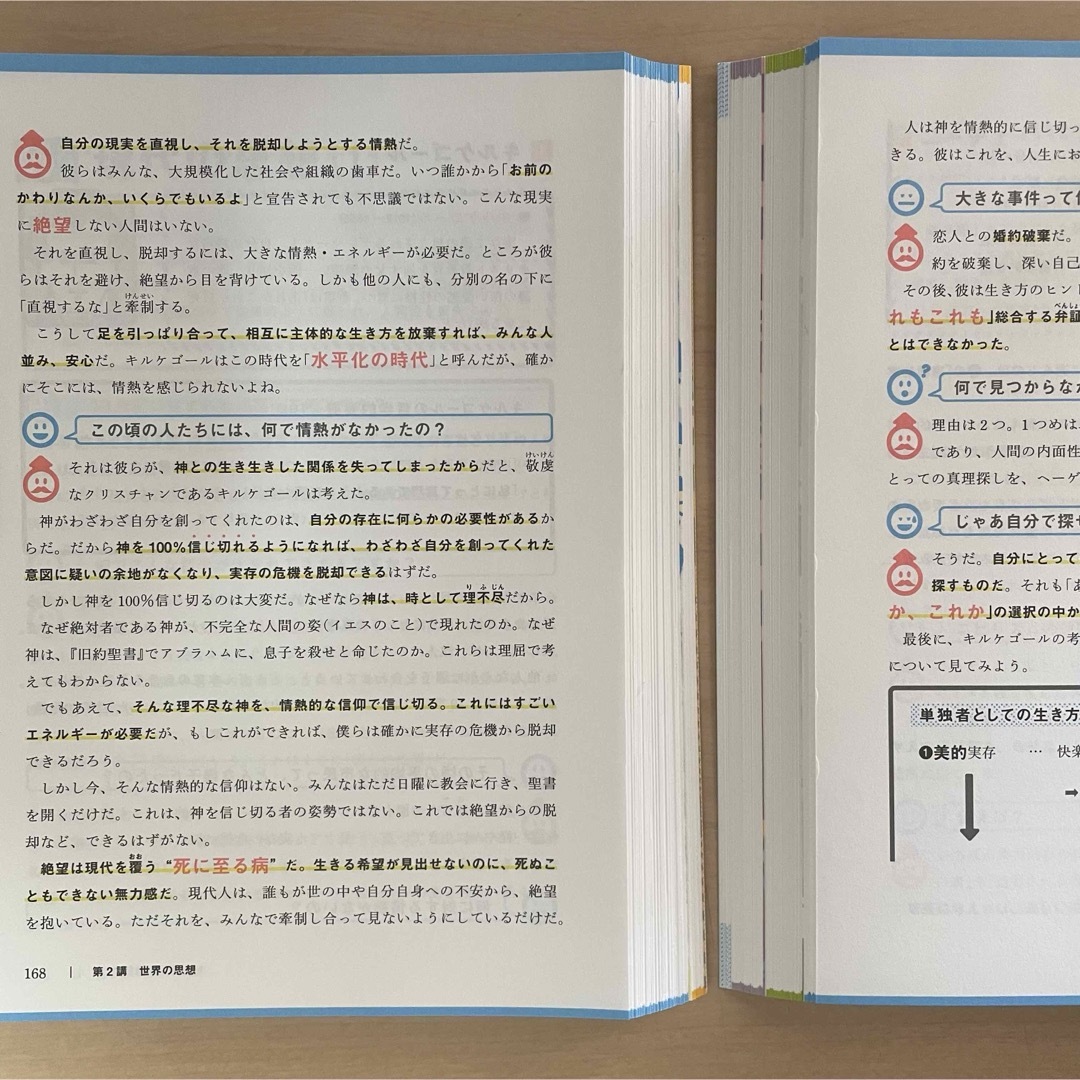 自分の現実を直視し、それを脱却しようとする情熱だ。
彼らはみんな、大規模化した社会や組織の歯車だ。いつ誰かから「お前の
かわりなんか、いくらでもいるよ」と宣告されても不思議ではない。こんな現実
に絶望しない人間はいない。
それを直視し、脱却するには、大きな情熱・エネルギーが必要だ。ところが彼
らはそれを避け、絶望から目を背けている。しかも他の人にも、分別の名の下に
「直視するな」と牽制する。
こうして足を引っぱり合って、相互に主体的な生き方を放棄すれば、みんな人
並み、安心だ。キルケゴールはこの時代を「水平化の時代」と呼んだが、確か
にそこには、情熱を感じられないよね。
この頃の人たちには、何で情熱がなかったの？
それは彼らが、神との生き生きした関係を失ってしまったからだと、敬虔
なクリスチャンであるキルケゴールは考えた。
神がわざわざ自分を創ってくれたのは、自分の存在に何らかの必要性があるか
らだ。だから神を100%信じ切れるようになれば、わざわざ自分を創ってくれた
意図に疑いの余地がなくなり、実存の危機を脱却できるはずだ。
しかし神を100%信じ切るのは大変だ。なぜなら神は、時として理不尽だから。
なぜ絶対者である神が、不完全な人間の姿（イエスのこと）で現れたのか。なぜ
神は、『旧約聖書』でアブラハムに、息子を殺せと命じたのか。これらは理屈で考
えてもわからない。
でもあえて、そんな理不尽な神を、情熱的な信仰で信じ切る。これにはすごい
エネルギーが必要だが、もしこれができれば、僕らは確かに実存の危機から脱却
できるだろう。
しかし今、そんな情熱的な信仰はない。みんなはただ日曜に教会に行き、聖書
を開くだけだ。これは、神を信じ切る者の姿勢ではない。これでは絶望からの脱
却など、できるはずがない。
絶望は現代を覆う“死に至る病”だ。生きる希望が見出せないのに、死ぬこ
ともできない無力感だ。現代人は、誰もが世の中や自分自身への不安から、絶望
を抱いている。ただそれを、みんなで牽制し合って見ないようにしているだけだ。
168 | 第2講 世界の思想
人は神を情熱的に信じ切っ
きる。彼はこれを、人生にお
大きな事件って
恋人との婚約破棄だ。
約を破棄し、深い自己
その後、彼は生き方のヒント
れもこれも」総合する弁証
とはできなかった。
何で見つからな
理由は2つ。1つめは
であり、人間の内面性
とっての真理探しを、ヘーゲ
じゃあ自分で探せ
そうだ。自分にとって
探すものだ。それも「あ
か、これか」の選択の中か
最後に、キルケゴールの考
について見てみよう。
単独者としての生き方
❶美的実存 … 快楽
➡